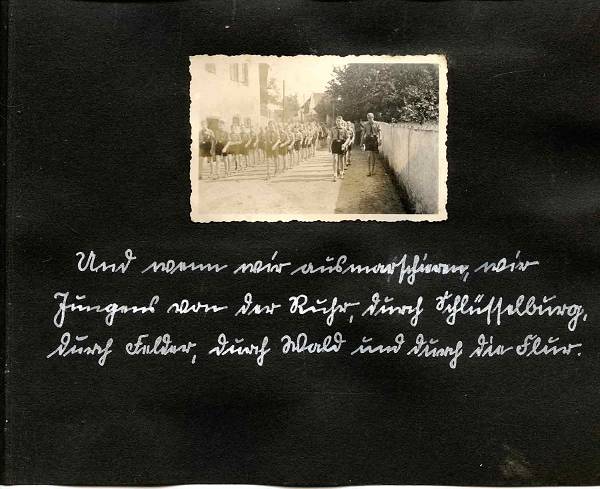 Und wenn wir ausmarschieren, wir
Jungens von der Ruhr, durch Schlüsselburg,
durch Felder, durch Wald und durch die Flur.